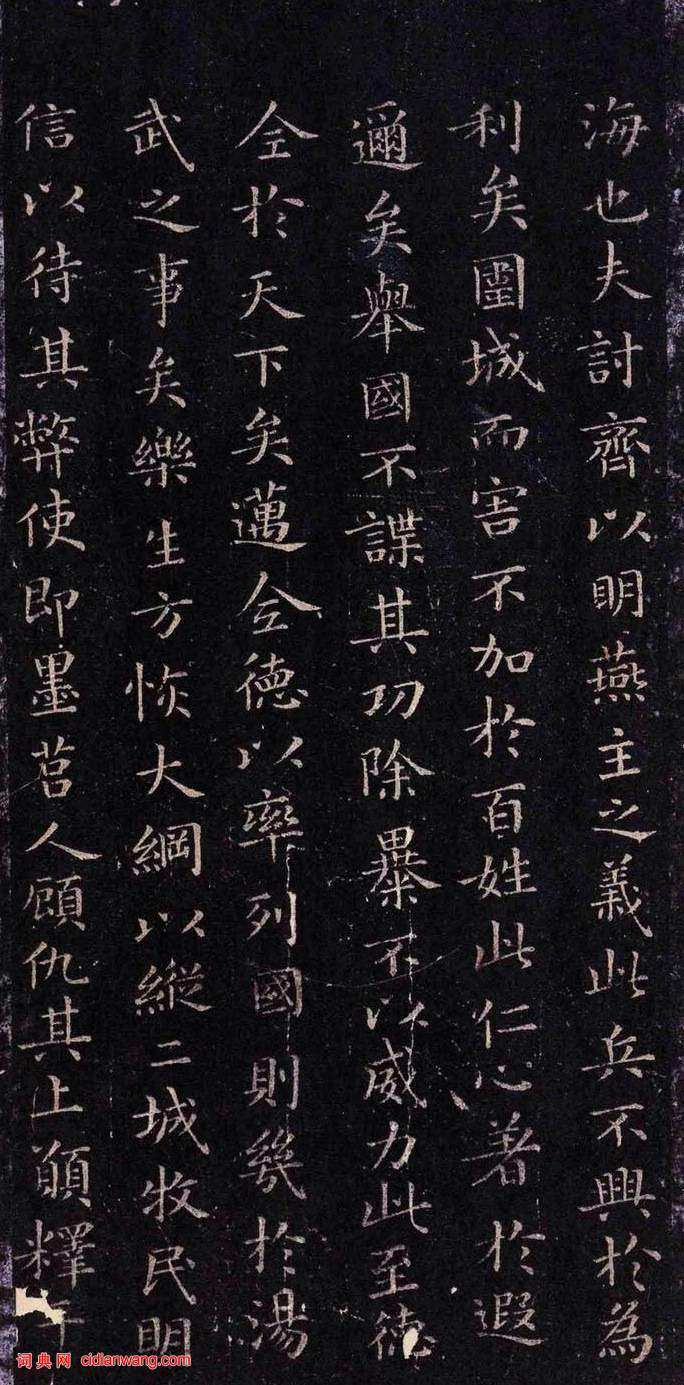 海也夫討齊以明燕主之義此兵不興於為
利矣圍城而害不加於百姓此仁心著於遐
邇矣舉國不謀其功除暴不以威力此至德
全於天下矣邁全德以率列國則幾於湯
武之事矣樂生方恢大綱以縱二城牧民明
信以待其弊使即墨莒人顧仇其上願釋干
词典网 cidianwang.com